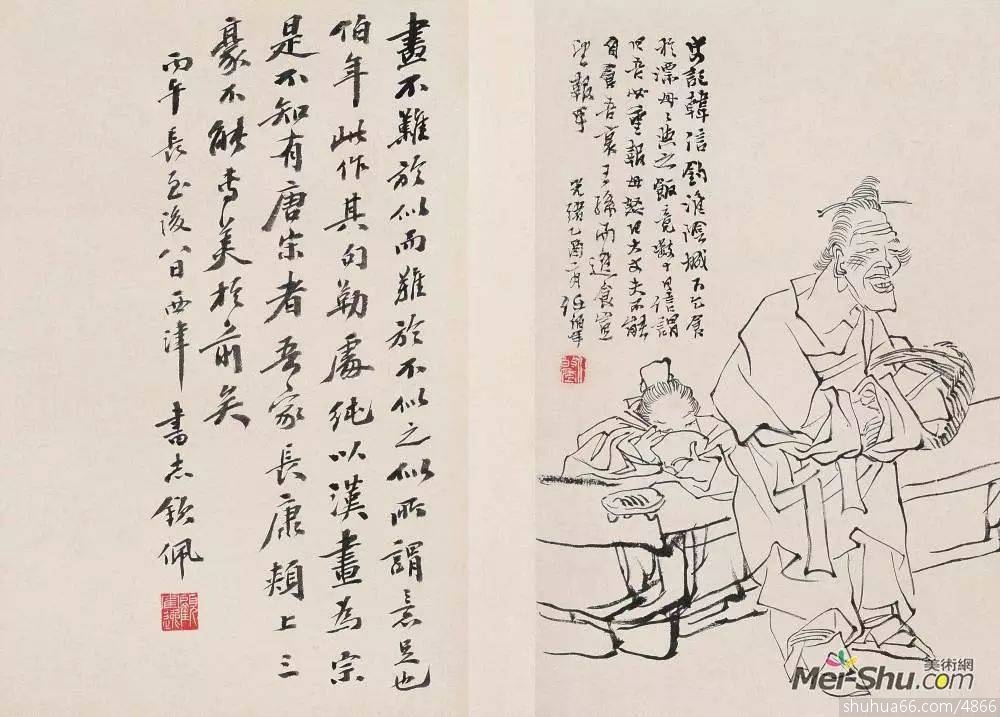 史記韓信釣淮陰城下乞食
於漂母々與之飯竟數十日信謂
曰吾必重報母怒曰大丈夫不能
自食吾哀王孫而進食豈
望報乎 光緒乙酉二月任伯年
畫不難於似而難於不似之似所謂意足也
伯年此作其勾勒處純以漢畫為宗
是不知有唐宋者吾家長康頰上三
豪不能專美於前矣
丙午長至後八日西津書志欽佩
美術網
Mei-Shu.com
shuhua66.com/4866